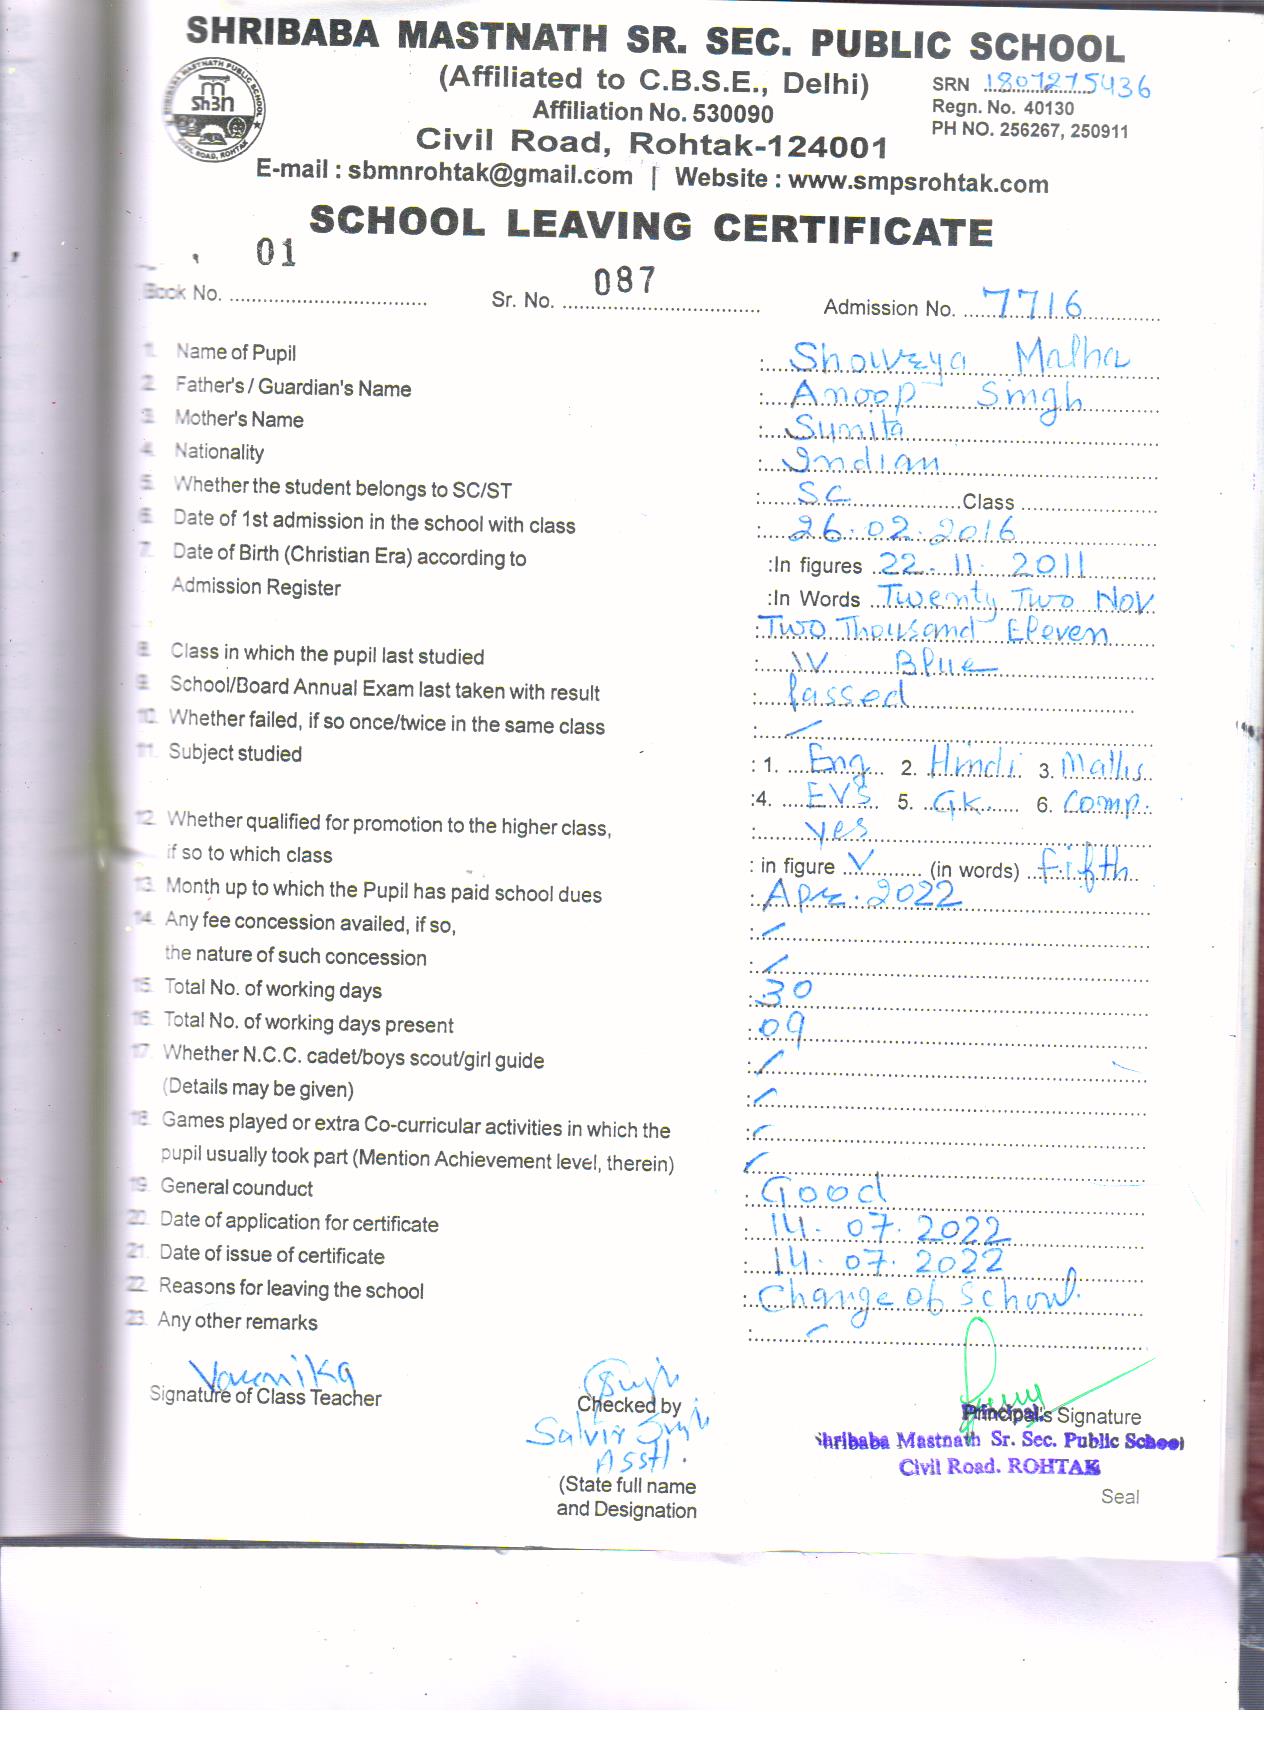 SHRIBABA MASTNATH SR. SEC. PUBLIC SCHOOL
(Affiliated to C.B.S.E., Delhi)
SRN 1801215436
Affiliation No. 530090
Regn. No. 40130
Civil Road, Rohtak-124001
PH NO. 256267, 250911
E-mail : sbmnrohtak@gmail.com | Website : www.smpsrohtak.com
SCHOOL LEAVING CERTIFICATE
Book No. 01 Sr. No. 087 Admission No. 7716
1. Name of Pupil : Showrya Malha
2. Father's / Guardian's Name : Anoop Singh
3. Mother's Name : Sumita
4. Nationality : Indian
5. Whether the student belongs to SC/ST : SC Class
6. Date of 1st admission in the school with class : 26.02.2016
7. Date of Birth (Christian Era) according to :In figures 22-11-2011
Admission Register :In Words Twenty Two Nov
: Two Thousand Eleven
8. Class in which the pupil last studied : IV Blue
9. School/Board Annual Exam last taken with result : Passed
10. Whether failed, if so once/twice in the same class : /
11. Subject studied : 1. Eng 2. Hindi 3. Maths
:4. EVS 5. GK 6. Comp.
12. Whether qualified for promotion to the higher class, : yes
if so to which class : in figure V (in words) Fifth
13. Month up to which the Pupil has paid school dues : Apr. 2022
14. Any fee concession availed, if so, : /
the nature of such concession : /
15. Total No. of working days : 30
16. Total No. of working days present : 09
17. Whether N.C.C. cadet/boys scout/girl guide : /
(Details may be given) : /
18. Games played or extra Co-curricular activities in which the : /
pupil usually took part (Mention Achievement level, therein) /
19. General counduct : Good
20. Date of application for certificate : 14.07.2022
21. Date of issue of certificate : 14.07.2022
22. Reasons for leaving the school : Change of School.
23. Any other remarks : /
Signature of Class Teacher
Checked by
Principal's Signature
Satvir Singh
Asstt.
Shribaba Mastnath Sr. Sec. Public School
Civil Road. ROHTAK
(State full name
and Designation
Seal